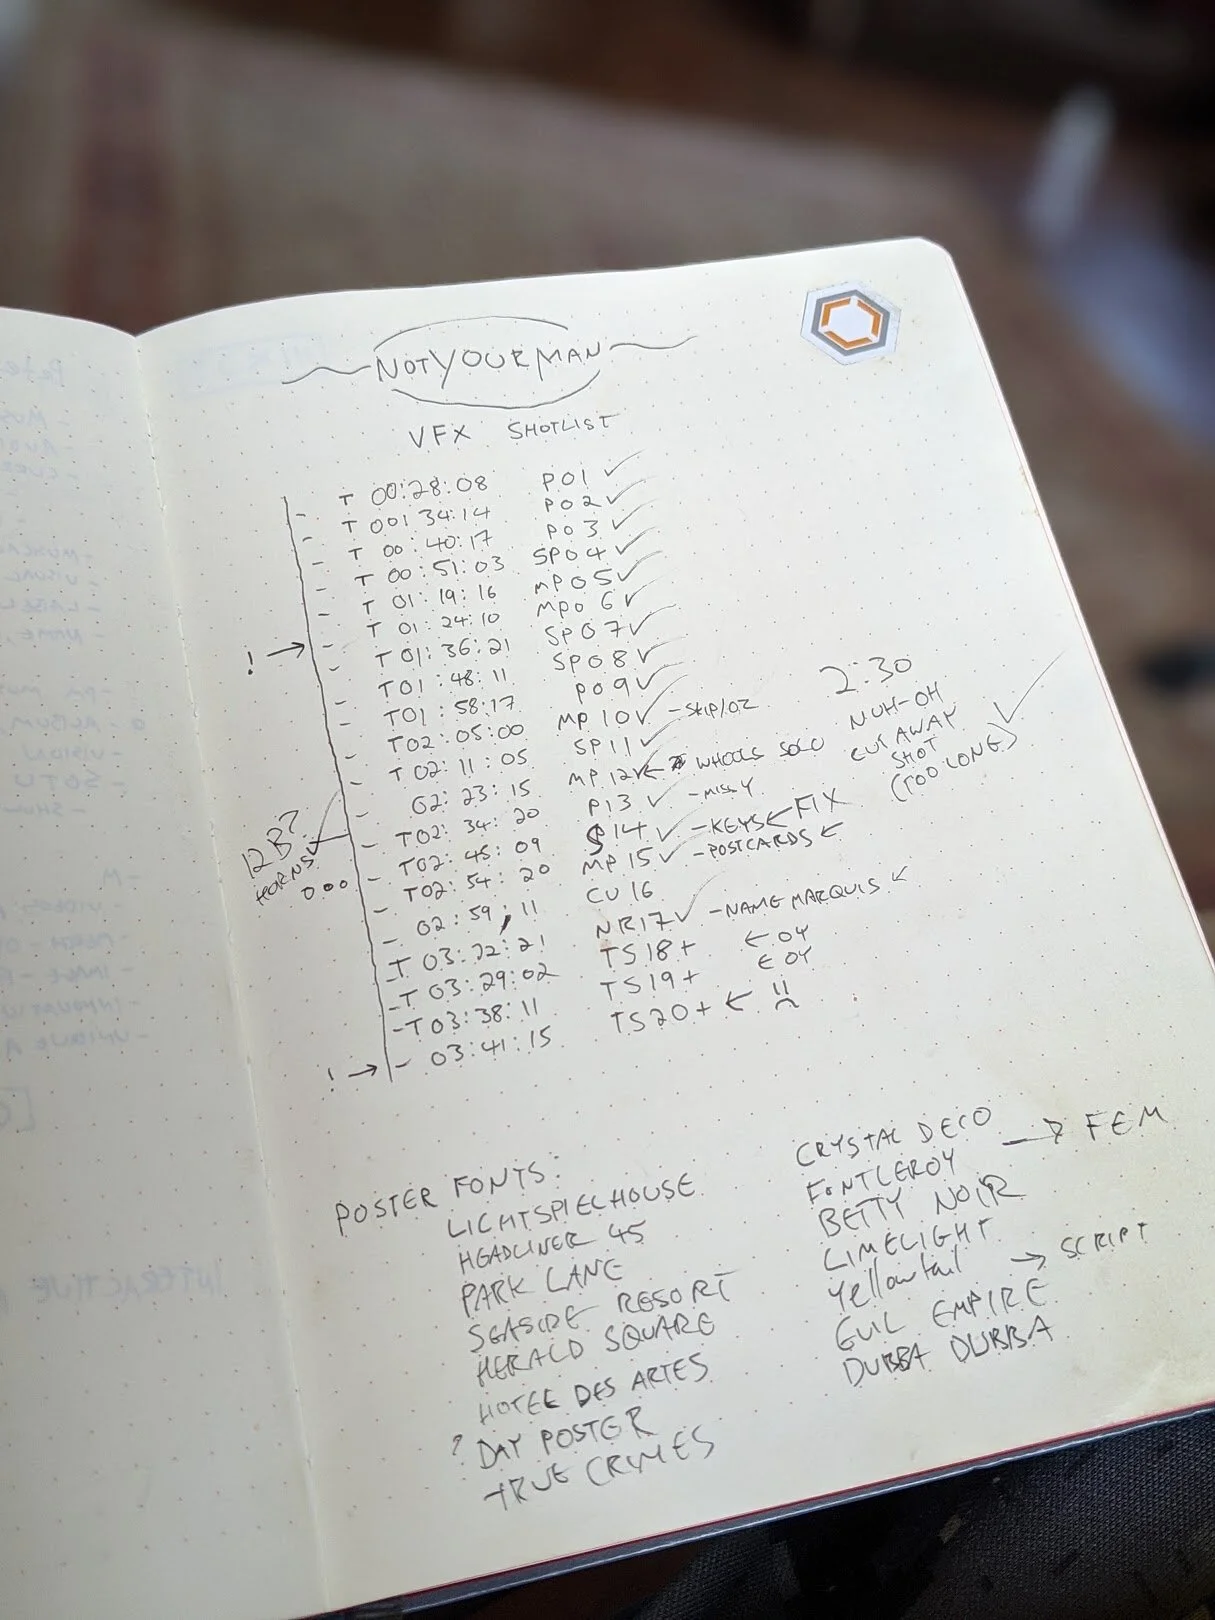 NOT YOUR MAN
VFX SHOTLIST
T 00:28:08 P01 ✓
T 00:34:14 P02 ✓
T 00:40:17 P03 ✓
T 00:51:03 SP04 ✓
T 01:19:16 MP05 ✓
T 01:24:10 MP06 ✓
! → T 01:36:21 SP07 ✓
T 01:48:11 SP08 ✓
T 01:58:17 P09 ✓
T 02:05:00 MP10 ✓ - SKIP/OZ
T 02:11:05 SP11 ✓
02:23:15 MP12 ✓ ← WHOOLS SOLO
T 02:34:20 P13 ✓ - MISSY
T 02:45:09 S14 ✓ - KEYS ← FIX
T 02:54:20 MP15 ✓ - POSTCARDS ←
02:59:11 CU16
T 03:22:21 NR17 ✓ - NAME MARQUIS ←
T 03:29:02 TS18+ ← OY
T 03:38:11 TS19+ ← OY
! → - 03:41:15 TS20+ ←
2:30
NUH-OH
CUT AWAY
SHOT
(TOO LONG) ✓
12B?
HORNS
000
POSTER FONTS:
LICHTSPIELHOUSE
HEADLINER 45
PARK LANE
SEASIDE RESORT
HERALD SQUARE
HOTEL DES ARTES
? DAY POSTER
TRUE CRIMES
CRYSTAL DECO
FONTLEROY → FEM
BETTY NOIR
LIMELIGHT
Yellowtail → SCRIPT
EVIL EMPIRE
DUBBA DUBBA